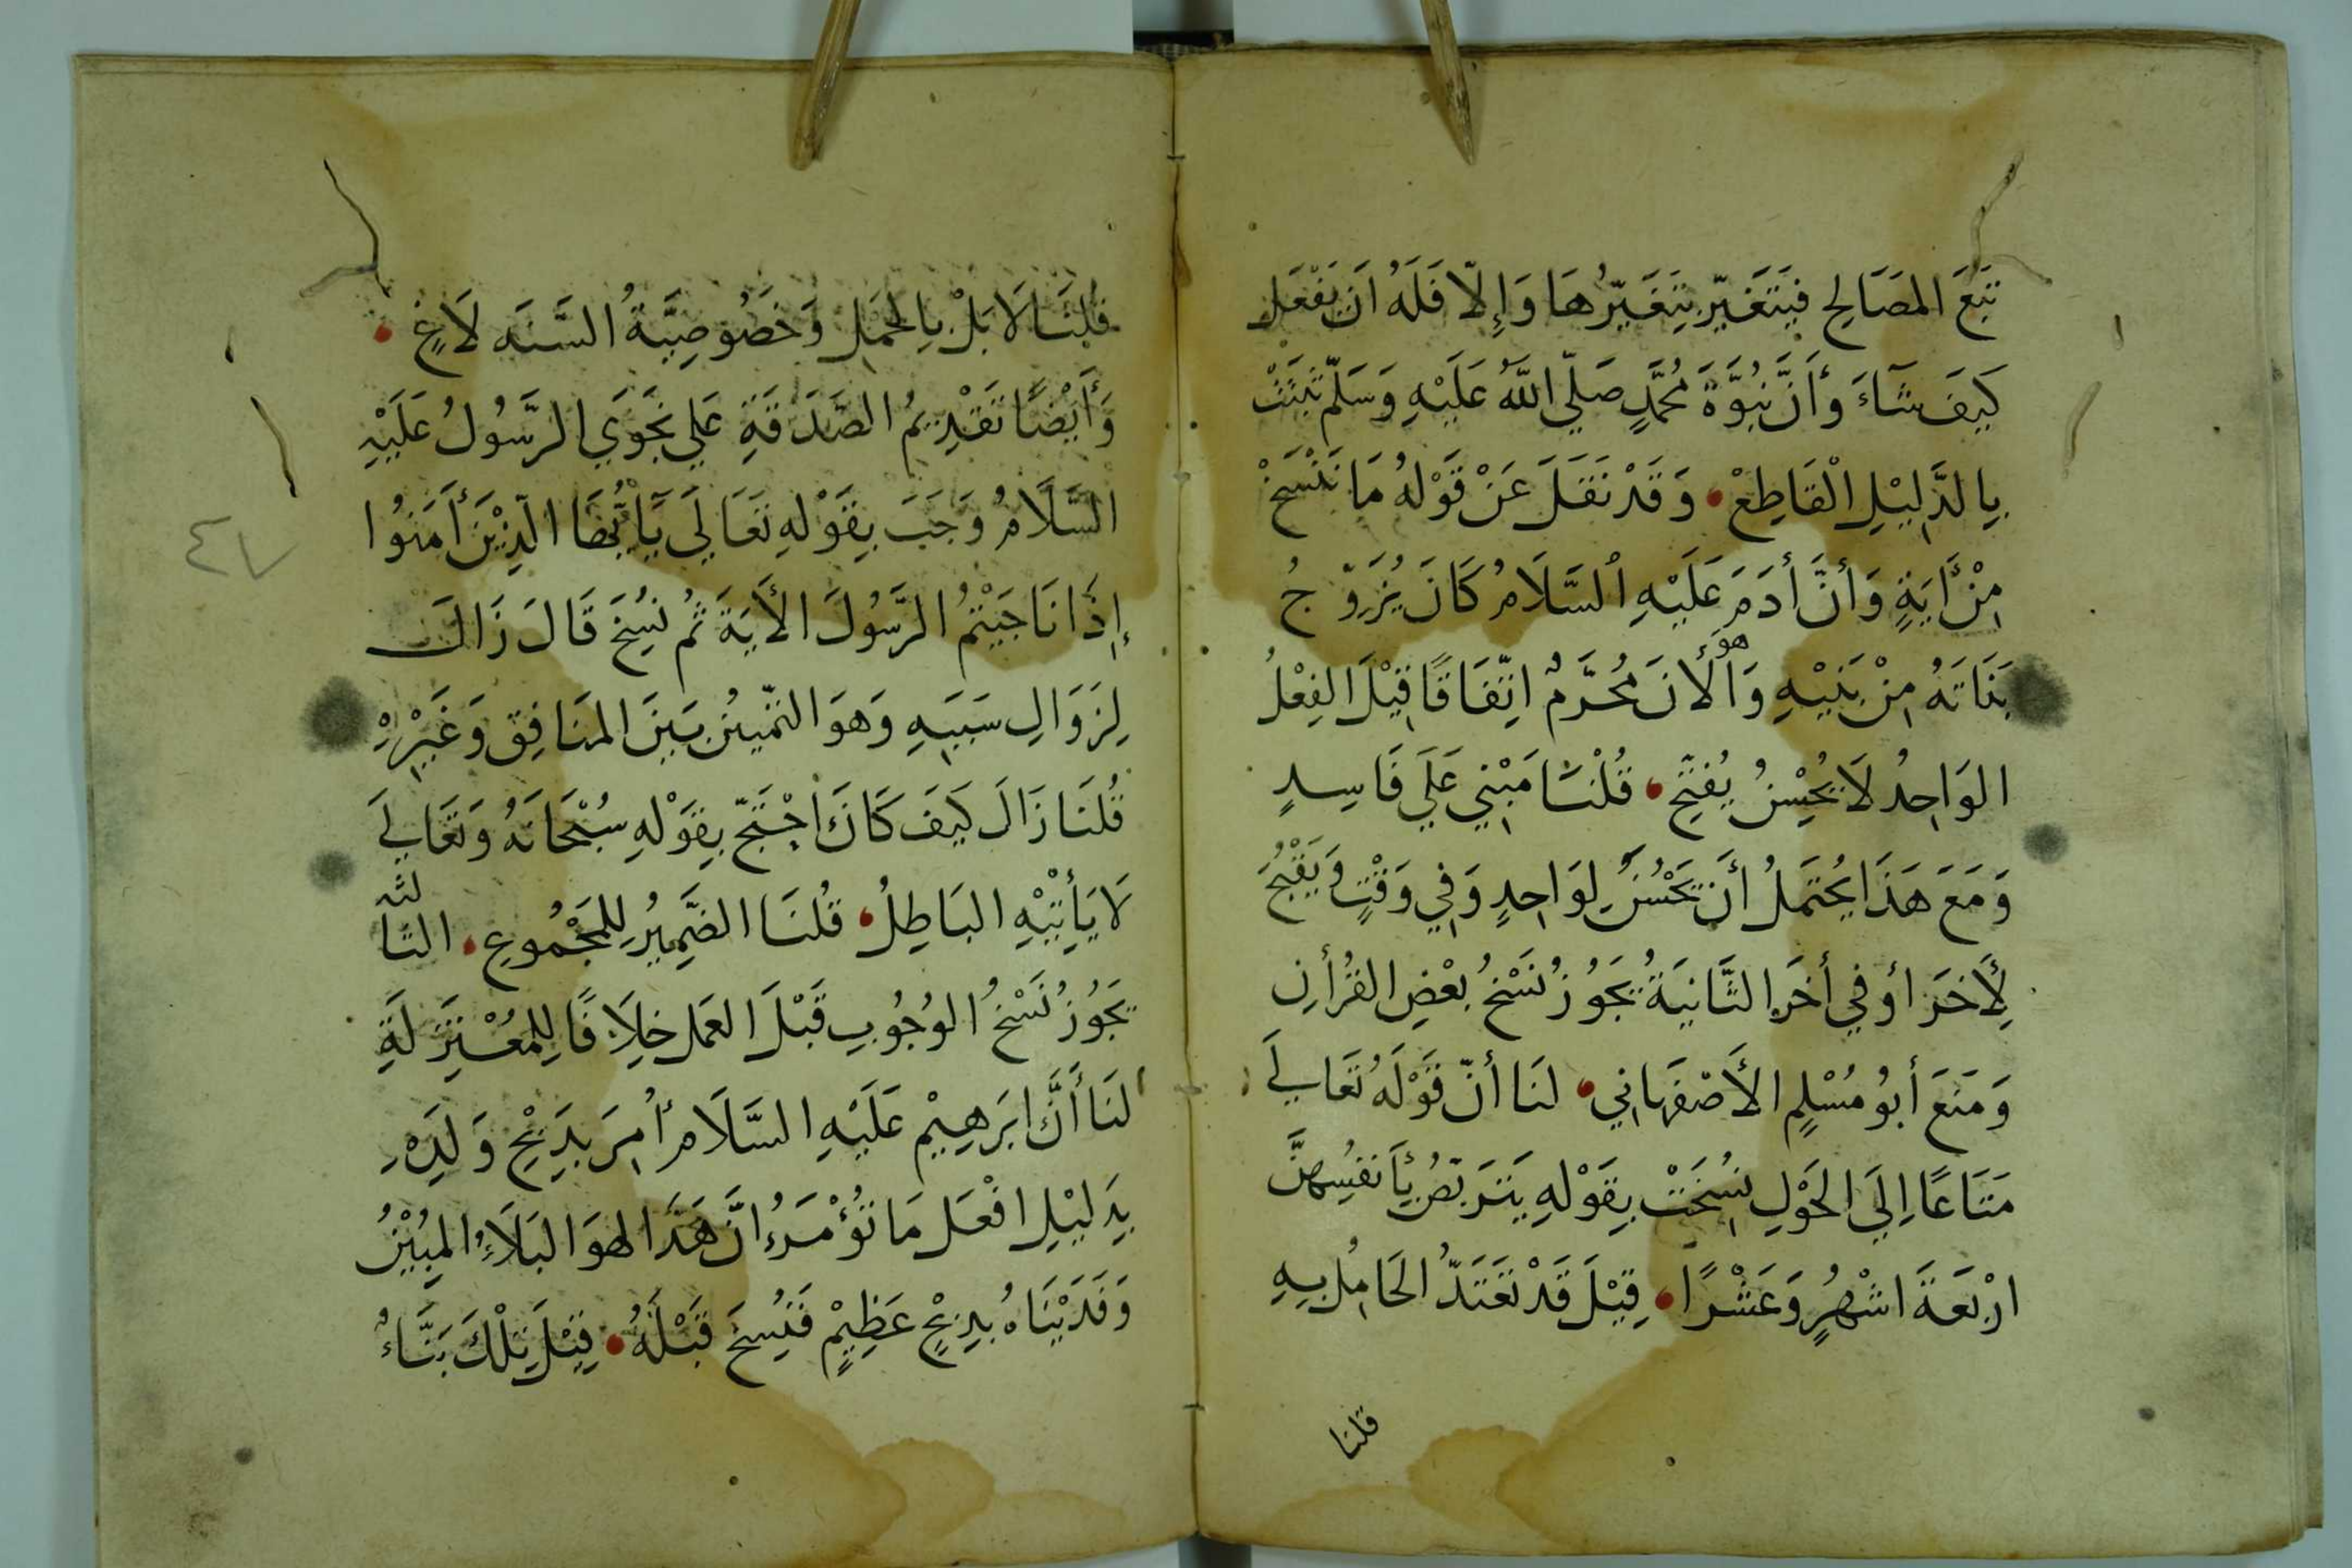 تَبِعَ المصَالِح فيَتَغَيّر بِتَغَيّرُهَا وَإِلّا فَلَهُ اَن يَفْعَل
كَيفَ شَآءَ وأَنَّ نبُوَّةَ مُحمَّدٍ صَلّي اللَّهُ عَلَيْهِ وَسَلّم ثبَتَتْ
بِالدَّلِيْلِ الْقَاطِعْ وَقَدْ نَقَلَ عَنْ قَوْلهُ مَا نَنْسَخْ
مِنْ أَيَةٍ وَأنَّ أدَمَ عَلَيْهِ السَّلَامُ كَانَ يُزَوّجُ
بَنَاتَهُ مِنْ بَنِيْهِ وَهوَ الأنَ مُحَرَّمٌ اتِّفَاقًا قِيْلَ الفِعْلُ
الوَاحِدُ لَا يُحْسِنُ يُفتِّح قُلْنَا مَبْنِي عَلَي فَاسِدٍ
وَمَعَ هَذَا يُحْتَمَلُ أَن تَحْسُنَ لِوَاحِدٍ وَفِي وَقْتٍ وَيَقْبُحَ
لِأَخَرَ اوفي أخَرَ الثَّانيَةُ يَجَوُزُ نُسْخُ بعْضِ القُرْأنِ
وَمَنَعَ أبُو مُسْلِمٍ الأَصْفهَاني لنَا أنّ قَوْلَهُ تَعَالِي
مَتَاعًا اِلَي الحَوْلِ نسُخَتْ بِقَوْلهِ يَترَبّصْنَ بِأَنفسُهِنَّ
ارْبَعَةَ اشْهُرٍ وَعَشْرًا قِيْلَ قَدْ تَعْتَدّ الحَامِل بِهِ
قلنا
قُلنَا لَا بَلْ بِالحَمْلِ وَخُصُوصِيَّةُ السَّنَه لَاغٍ
وَأَيْضًا تَقْدِيمُ الصّدَقَةِ عَلي نجَوَي الرَّسُولُ عَلَيْهِ
السَّلَامُ وَجَبَ بِقَوْلهِ تَعَالَي يَآ اَيُّهَا الَّذِيْنَ أَمَنُوا
إِذَا نَاجَيْتُمُ الرَّسُولَ الأَيَةَ ثُم نسُخَ قَالَ زَالَ
لِزَوَالِ سَبَبِهِ وَهوَ التمّييْزُ بَيَنَ المنَافِق وَغَيْرِهِ
قُلنَا زَالَ كَيفَ كَانَ احْتَجّ بِقَوْلهِ سُبْحَانَهُ وَتَعَالِيَ
لَا يَأتِيْهِ البَاطِلُ قُلنَا الضَّمِيُر لِلمَجْمُوعِ الثالثه
يَجَوُزُ نَسْخُ الوُجُوبِ قَبْلَ العَمل خِلَافًا لِلمُعْتَزِلَةِ
لنَا أَنَّ ابَرَهِيْم عَلَيْهِ السَّلَام أُمِرَ بذِبْحِ وَلَدِهِ
بِدَلِيْلِ افْعَل مَا تُؤْمَرُ انَّ هَذَا لهوَ البَلَآءُ المبُيْنُ
وَفَدَيْنَاهُ بِذِبْحٍ عَظِيْمٍ فَنُسِخَ قَبْلَهُ قِيْلَ تِلْكَ بَنَّاءٌ
٤٧